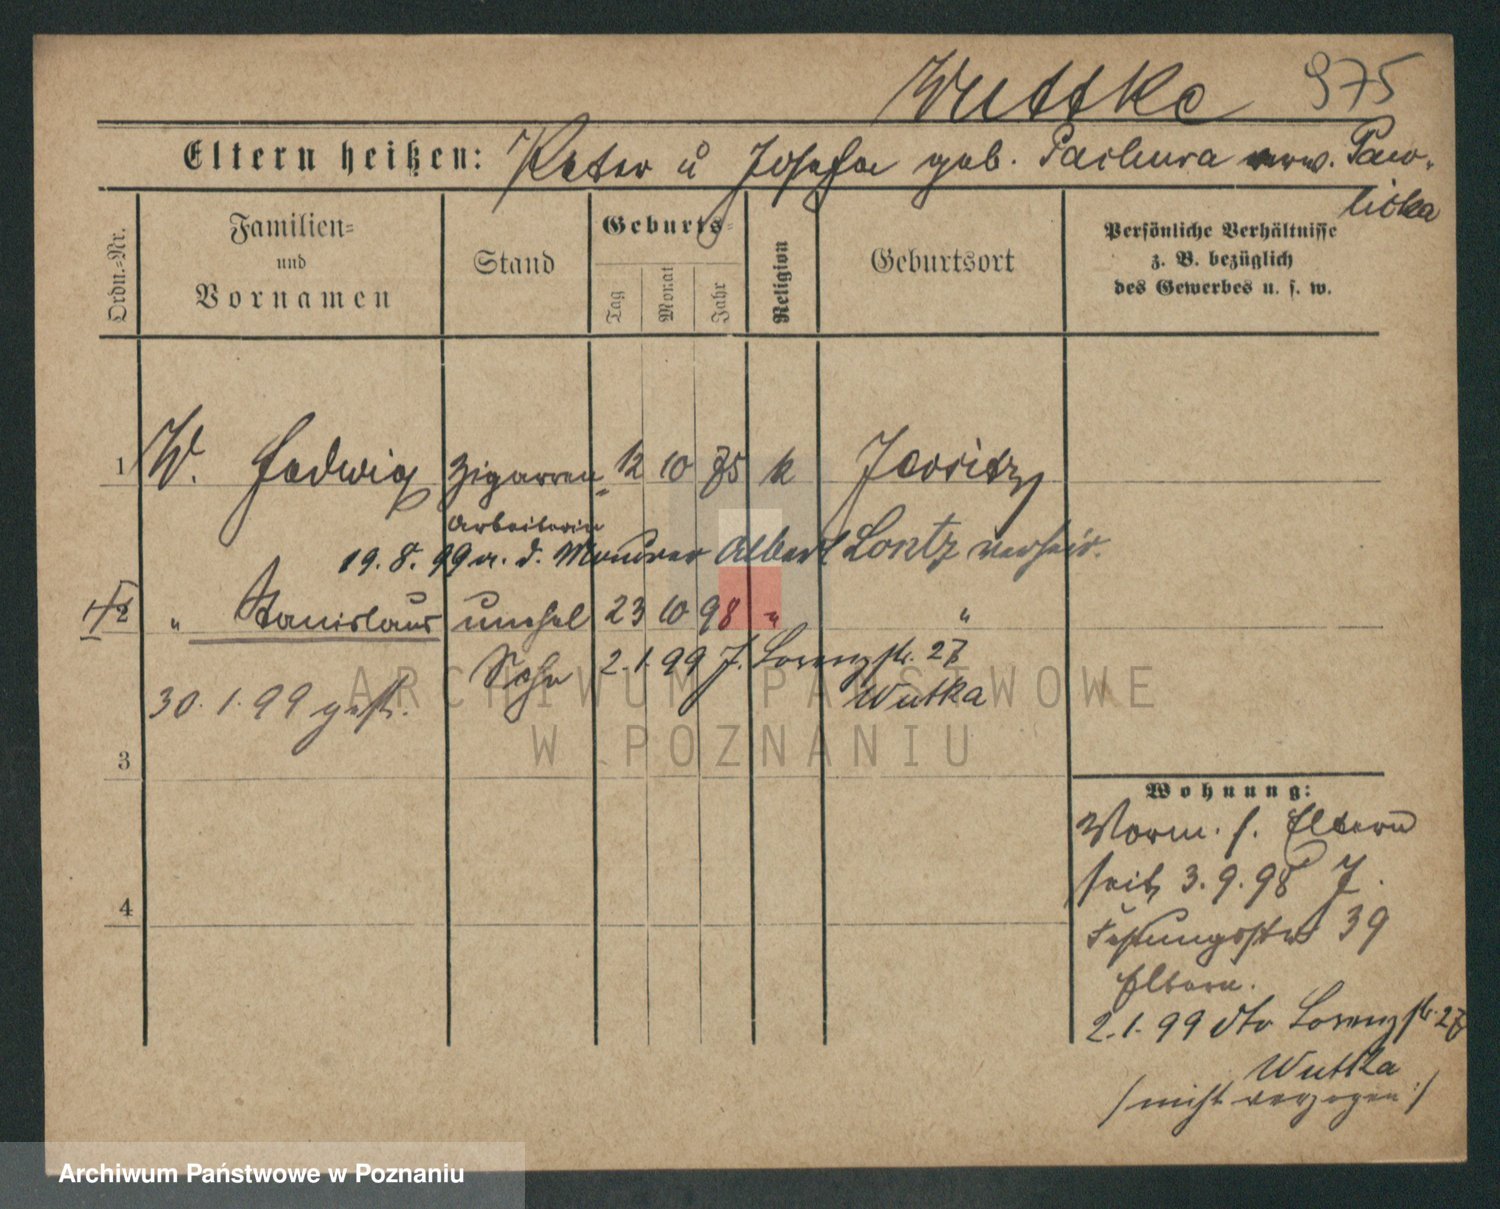 Wuttke 975
Eltern heißen: Peter u Josefa geb. Pachura verw. Paw-
licka
Ordn.-Nr.
Familien-
und
Vornamen
Stand
Geburts-
Tag
Monat
Jahr
Religion
Geburtsort
Persönliche Verhältnisse
z. B. bezüglich
des Gewerbes u. s. w.
1 W. Hedwig Zigarren- 12 10 75 k
arbeiterin
19.8.99 a. d. Maurer Albert Lontz verheir.
2 " Stanislaus unehel 23 10 98 " "
Sohn 2.1.99 J. Lorenzstr. 27
Wutka
30.1.99 gest.
3
4
Wohnung:
Vorm. s. Eltern
seit 3.9.98 J.
Festungsstr 39
Eltern.
2.1.99 dto Lorenzstr. 27
Wuttka
/nicht verzogen:/
ARCHIWUM PAŃSTWOWE
W POZNANIU
Archiwum Państwowe w Poznaniu